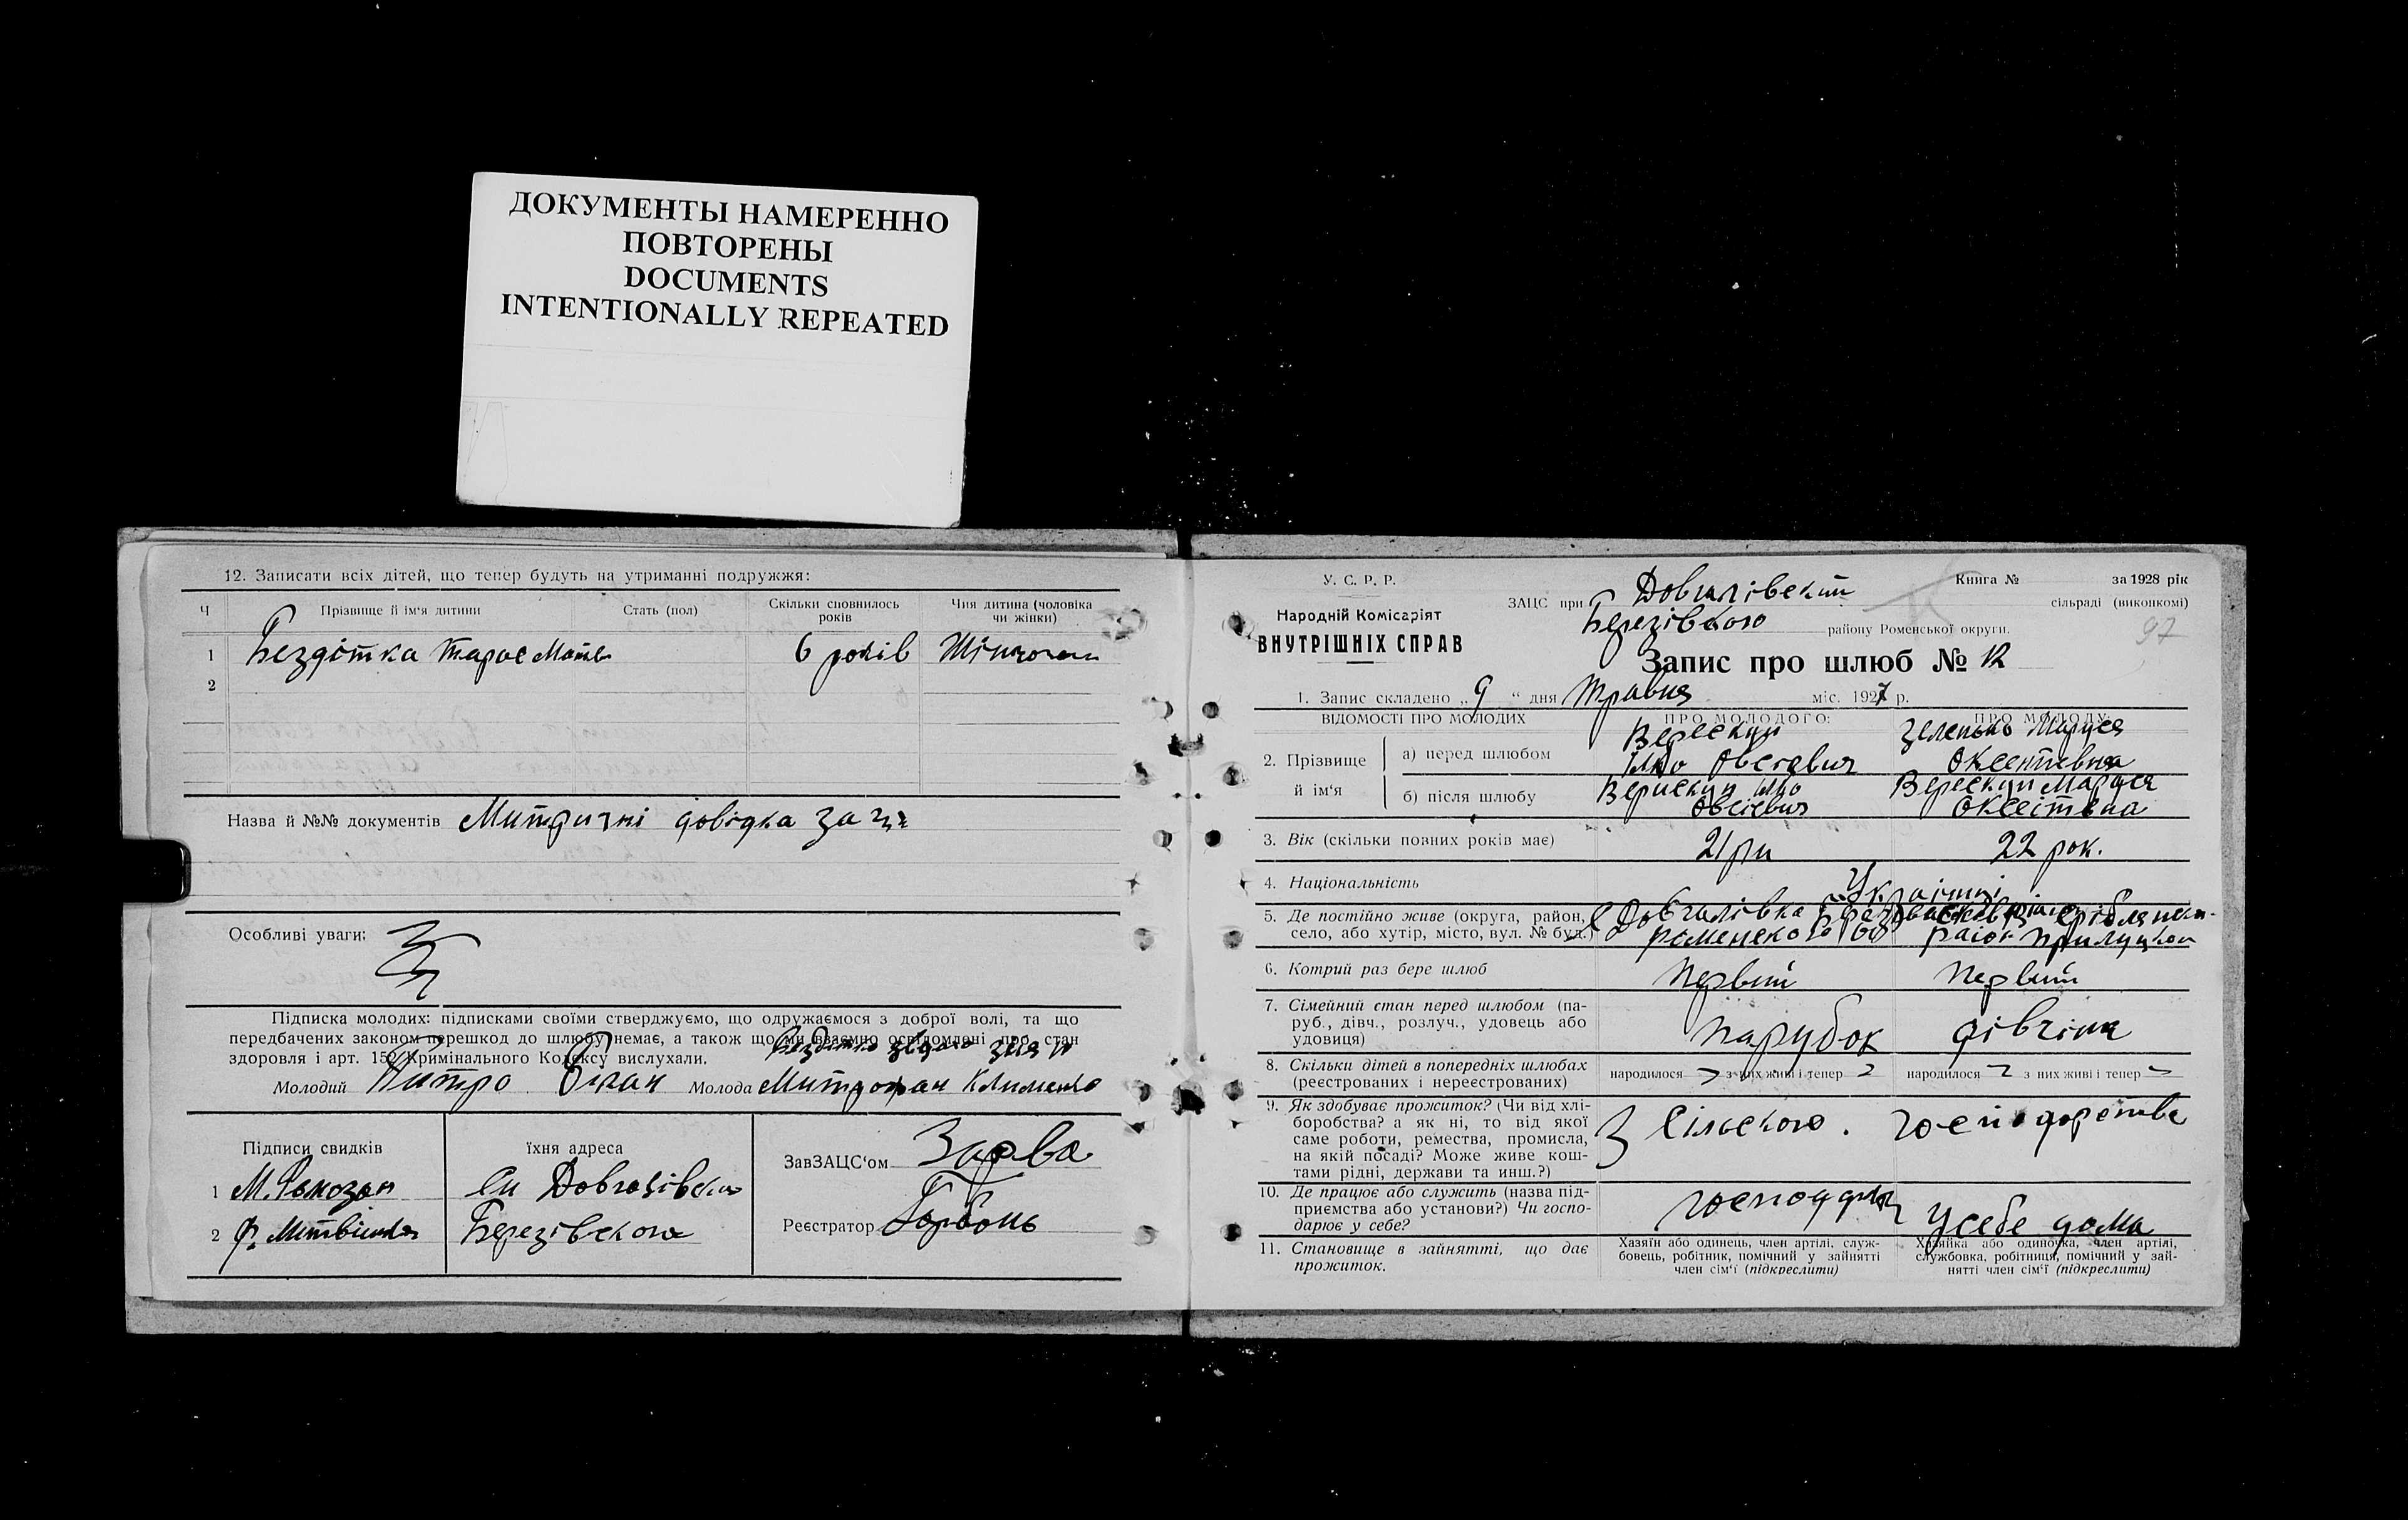 ДОКУМЕНТЫ НАМЕРЕННО
ПОВТОРЕНЫ
DOCUMENTS
INTENTIONALLY REPEATED
12. Записати всіх дітей, що тепер будуть на утриманні подружжя:
Ч Прізвище й ім'я дитини Стать (пол) Скільки сповнилось років Чия дитина (чоловіка чи жінки)
1 Бездітка Тарас 6 років
2
Назва й №№ документів довідка за
Особливі уваги:
Підписка молодих: підписками своїми стверджуємо, що одружаємося з доброї волі, та що
передбачених законом перешкод до шлюбу немає, а також що ми взаємно освідомлені про стан
здоровля і арт. 152 Кримінального Кодексу вислухали.
Молодий Молода Митрофан Клименко
Підписи свидків їхня адреса
ЗавЗАЦС'ом Зарва
1 М.
2 Ф. Березівского
Реєстратор
У. С. Р. Р.
Народній Комісаріят
ВНУТРІШНІХ СПРАВ
Книга № за 1928 рік
ЗАЦС при Довгалівскій сільраді (виконкомі)
Березівского району Роменської округи.
97
Запис про шлюб № 12
1. Запис складено „ 9 “ дня Травня міс. 1927 р.
ВІДОМОСТІ ПРО МОЛОДИХ ПРО МОЛОДОГО: ПРО МОЛОДУ:
2. Прізвище й ім'я
а) перед шлюбом Верескун Овсієвич Зеленько Маруся
б) після шлюбу Верискун Овсієвич Верескун Маруся
3. Вік (скільки повних років має) 21 рік 22 рок.
4. Національність Українці
5. Де постійно живе (округа, район,
село, або хутір, місто, вул. № буд.)
с Довгалівка роменского район прилуцкой
6. Котрий раз бере шлюб Первий Первий
7. Сімейний стан перед шлюбом (па-
руб., дівч., розлуч., удовець або
удовиця)
парубок дівчина
8. Скільки дітей в попередніх шлюбах
(реєстрованих і нереєстрованих)
народилося з них живі і тепер народилося з них живі і тепер
9. Як здобуває прожиток? (Чи від хлі-
боробства? а як ні, то від якої
саме роботи, ремества, промисла,
на якій посаді? Може живе кош-
тами рідні, держави та инш.?)
З сільского господарства
10. Де працює або служить (назва під-
приємства або установи?) Чи госпо-
дарює у себе?
у себе дома
11. Становище в зайнятті, що дає
прожиток.
Хазяїн або одинець, член артілі, служ-
бовець, робітник, помічний у зайнятті
член сім'ї (підкреслити)
Хазяйка або одиночка, член артілі,
службовка, робітниця, помічний у зай-
нятті член сім'ї (підкреслити)